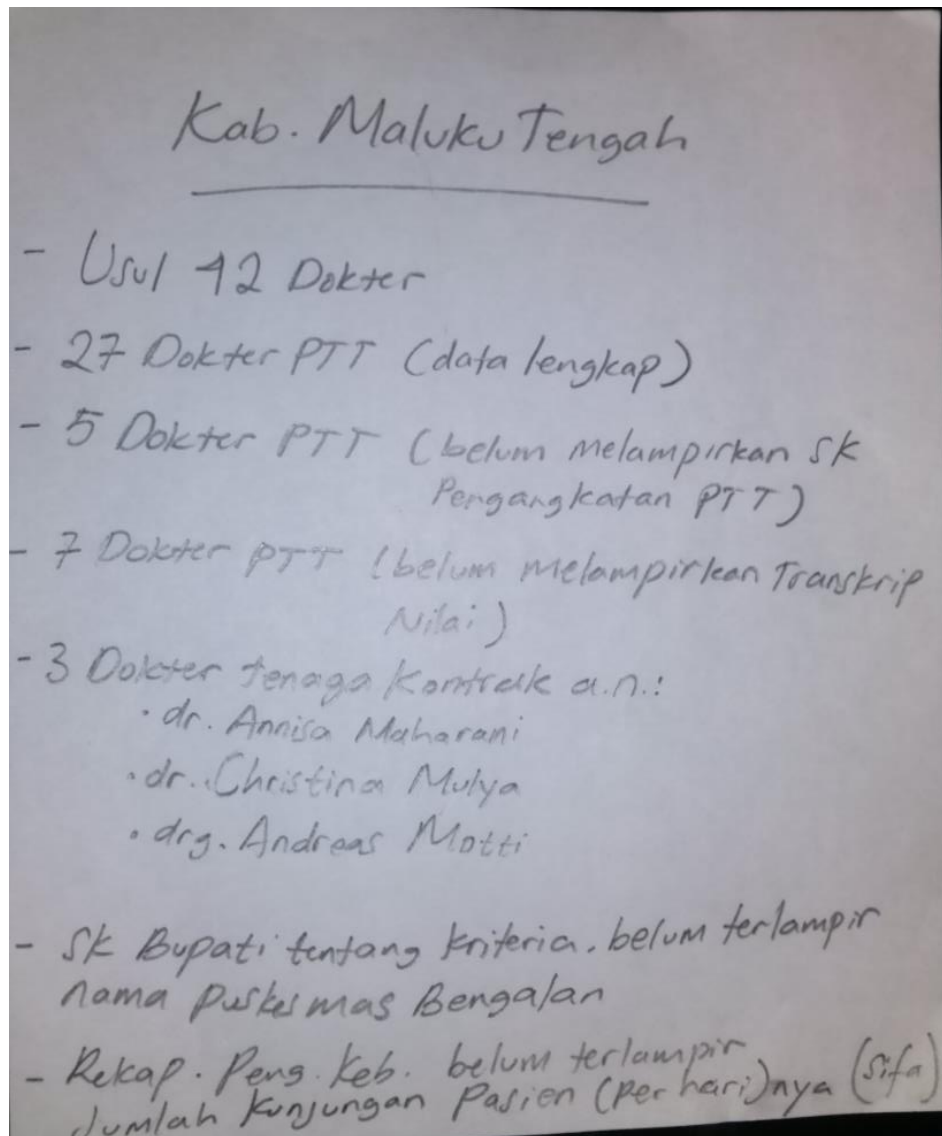 Kab. Maluku Tengah
- Usul 42 Dokter
- 27 Dokter PTT (data lengkap)
- 5 Dokter PTT (belum melampirkan SK
Pengangkatan PTT)
- 7 Dokter PTT (belum melampirkan Transkrip
Nilai)
- 3 Dokter tenaga Kontrak a.n.:
• dr. Annisa Maharani
• dr. Christina Mulya
• drg. Andreas Motti
- SK Bupati tentang kriteria. belum terlampir
nama Puskesmas Bengalan
- Rekap. Peng. Keb. belum terlampir
Jumlah Kunjungan Pasien (per hari)nya (sifa)